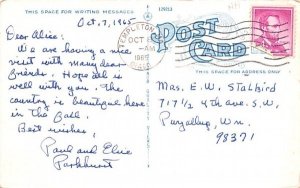 THIS SPACE FOR WRITING MESSAGES
Oct. 7, 1965
Dear Alice:
We are having a nice
visit with many dear
friends. Hope all is
well with you. The
country is beautiful here
in the Fall.
Best wishes,
Paul and Elsie
Parkhurst
129212
POST
CARD
TEMPLETON
OCT 8
-AM
1965
THIS SPACE FOR ADDRESS ONLY
Mrs. E. W. Stalbird
717½ 4th Ave. S.W.
Puyallup, Wn.
98371